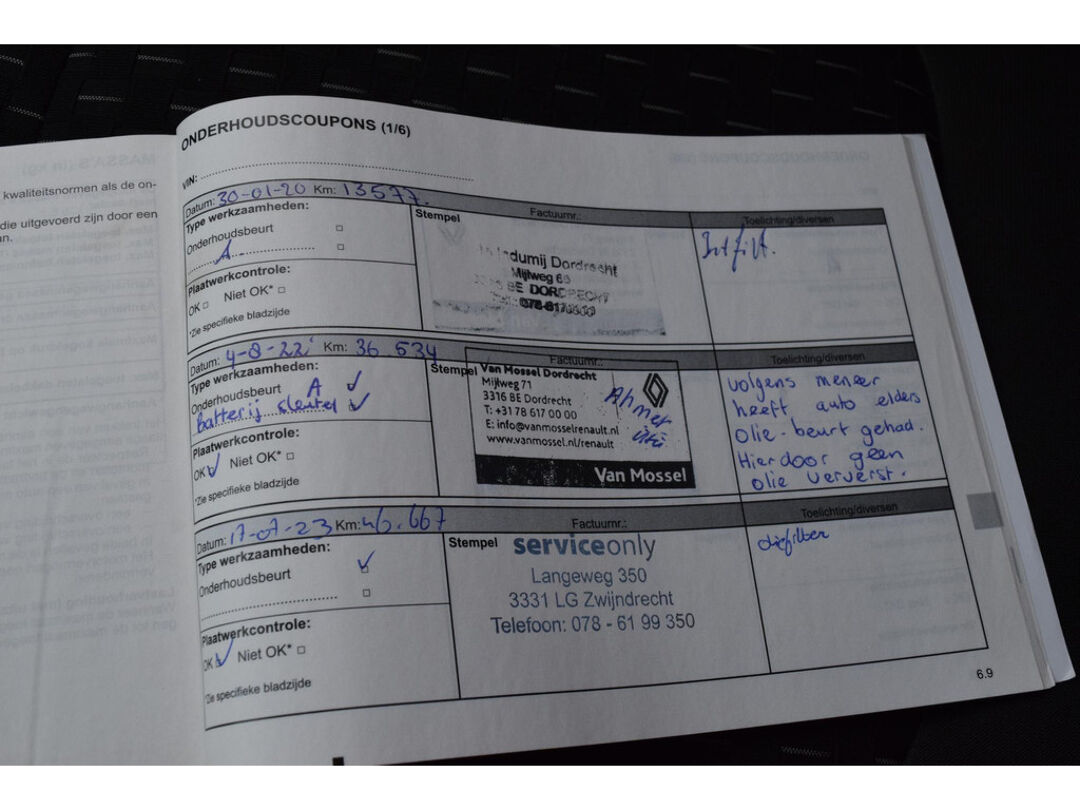 kwaliteitsnormen als de on-
die uitgevoerd zijn door een
an.
ONDERHOUDSCOUPONS (1/6)
VIN:
Datum: 30-01-20 Km: 13577.
Type werkzaamheden:
Onderhoudsbeurt
A
Plaatwerkcontrole:
OK Niet OK*
*Zie specifieke bladzijde
Stempel
Factuurnr.:
Dordrecht
Mijlweg
BE DORDRECHT
Toelichting/diversen
Int filt.
Datum: 4-8-22 Km: 36 634
Type werkzaamheden:
Onderhoudsbeurt A
Batterij sleutel
Plaatwerkcontrole:
OK Niet OK*
*Zie specifieke bladzijde
Stempel
Factuurnr.:
Van Mossel Dordrecht
Mijlweg 71
3316 BE Dordrecht
T: +31 78 617 00 00
E: info@vanmosselrenault.nl
www.vanmossel.nl/renault
Ahmet
Van Mossel
Toelichting/diversen
volgens meneer
heeft auto elders
olie-beurt gehad.
Hierdoor geen
olie ververst.
Datum: 17-07-23 Km: 46.667
Type werkzaamheden:
Onderhoudsbeurt
Plaatwerkcontrole:
OK Niet OK*
*Zie specifieke bladzijde
Stempel
Factuurnr.:
serviceonly
Langeweg 350
3331 LG Zwijndrecht
Telefoon: 078 - 61 99 350
Toelichting/diversen
6.9